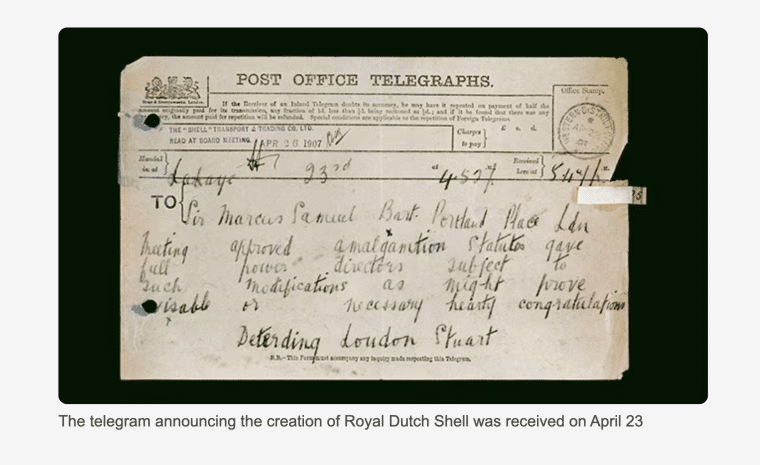 POST OFFICE TELEGRAPHS.
If the Receiver of an Inland Telegram doubts its accuracy, he may have it repeated on payment of half the
amount originally paid for its transmission, any fraction of 1d. less than ½d. being reckoned as ½d.; and if it be found that there was any
the amount paid for repetition will be refunded. Special conditions are applicable to the repetition of Foreign Telegrams.
Office Stamp.
THE "SHELL" TRANSPORT & TRADING CO. LTD.
READ AT BOARD MEETING. APR 26 1907
Charges to pay
£ s. d.
Handed in at
LaHaye 23rd at 4.57
Received here at
TO
Sir Marcus Samuel Bart. Portland Place Ldn
Meeting approved amalgamation Statutes gave
full power directors subject to
such modifications as might prove
visable or necessary hearty congratulations
Deterding Loudon Stuart
N.B.—This Form must accompany any inquiry made respecting this Telegram.
The telegram announcing the creation of Royal Dutch Shell was received on April 23